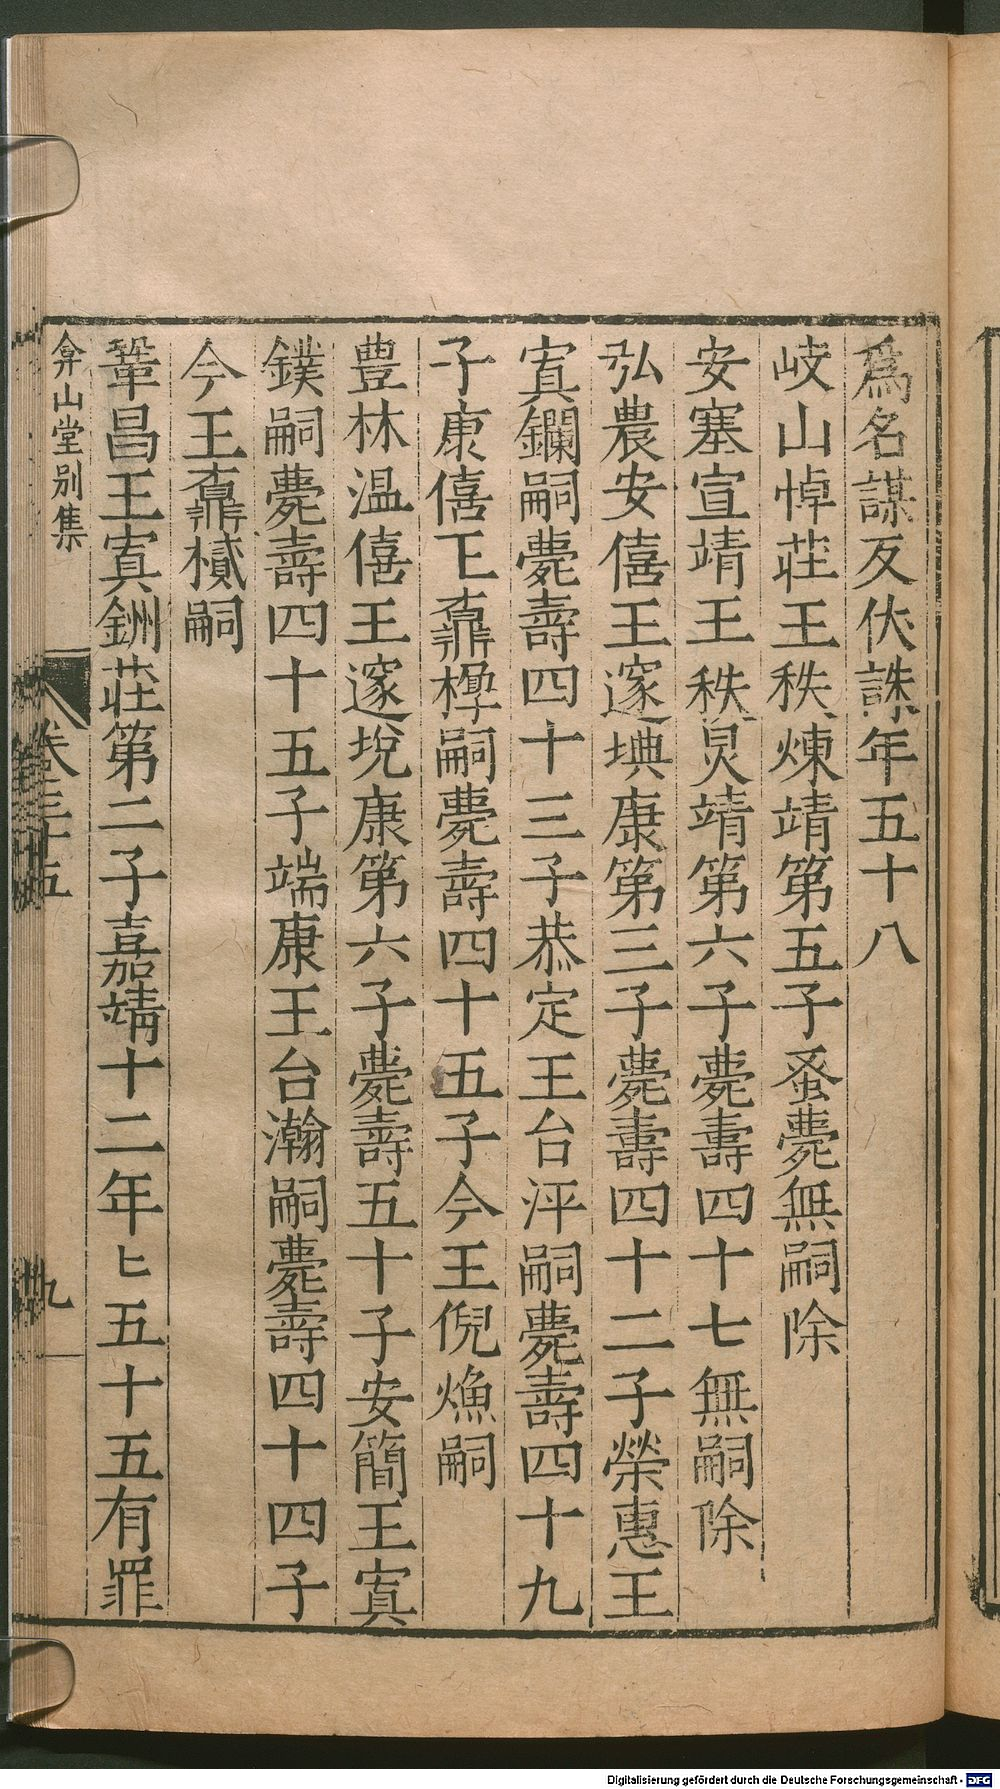 爲名謀反伏誅年五十八
岐山悼莊王秩煉靖第五子蚤薨無嗣除
安塞宣靖王秩炅靖第六子薨壽四十七無嗣除
弘農安僖王邃㙉康第三子薨壽四十二子榮惠王
寘鑭嗣薨壽四十三子恭定王台泙嗣薨壽四十九
子康僖王鼒㰒嗣薨壽四十五子今王倪𤐰嗣
豊林温僖王邃㙂康第六子薨壽五十子安簡王寘
鏷嗣薨壽四十五子端康王台瀚嗣薨壽四十四子
今王鼒樲嗣
鞏昌王寘銂莊第二子嘉靖十二年七五十五有罪
弇山堂别集
卷三十五
九
Digitalisierung gefördert durch die Deutsche Forschungsgemeinschaft - DFG